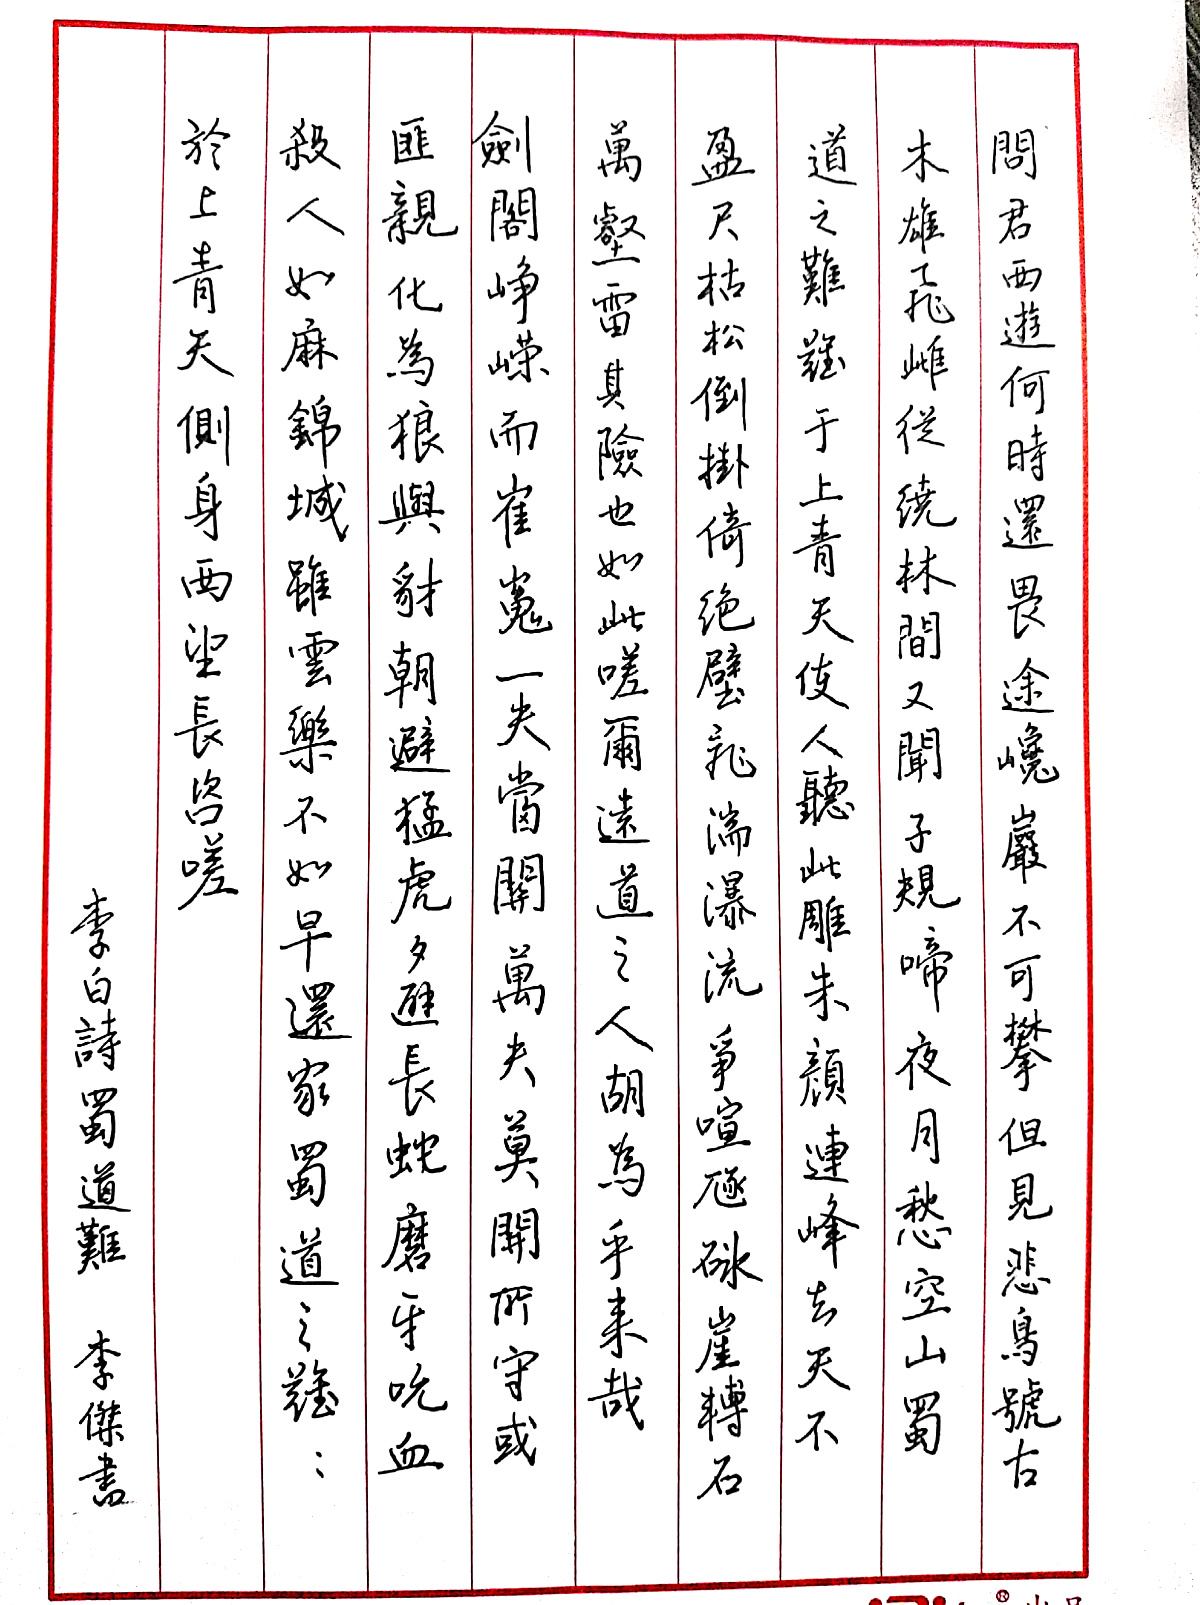 問君西遊何時還畏途巉巖不可攀但見悲鳥號古
木雄飛雌從繞林間又聞子規啼夜月愁空山蜀
道之難難于上青天使人聽此雕朱顏連峰去天不
盈尺枯松倒掛倚绝壁飛湍瀑流爭喧豗砯崖轉石
萬壑雷其險也如此嗟爾遠道之人胡為乎来哉
劍閣峥嵘而崔嵬一夫當關萬夫莫開所守或
匪親化為狼與豺朝避猛虎夕避長蛇磨牙吮血
殺人如麻錦城雖雲樂不如早還家蜀道之難:
於上青天側身西望長咨嗟
李白詩蜀道難 李傑書